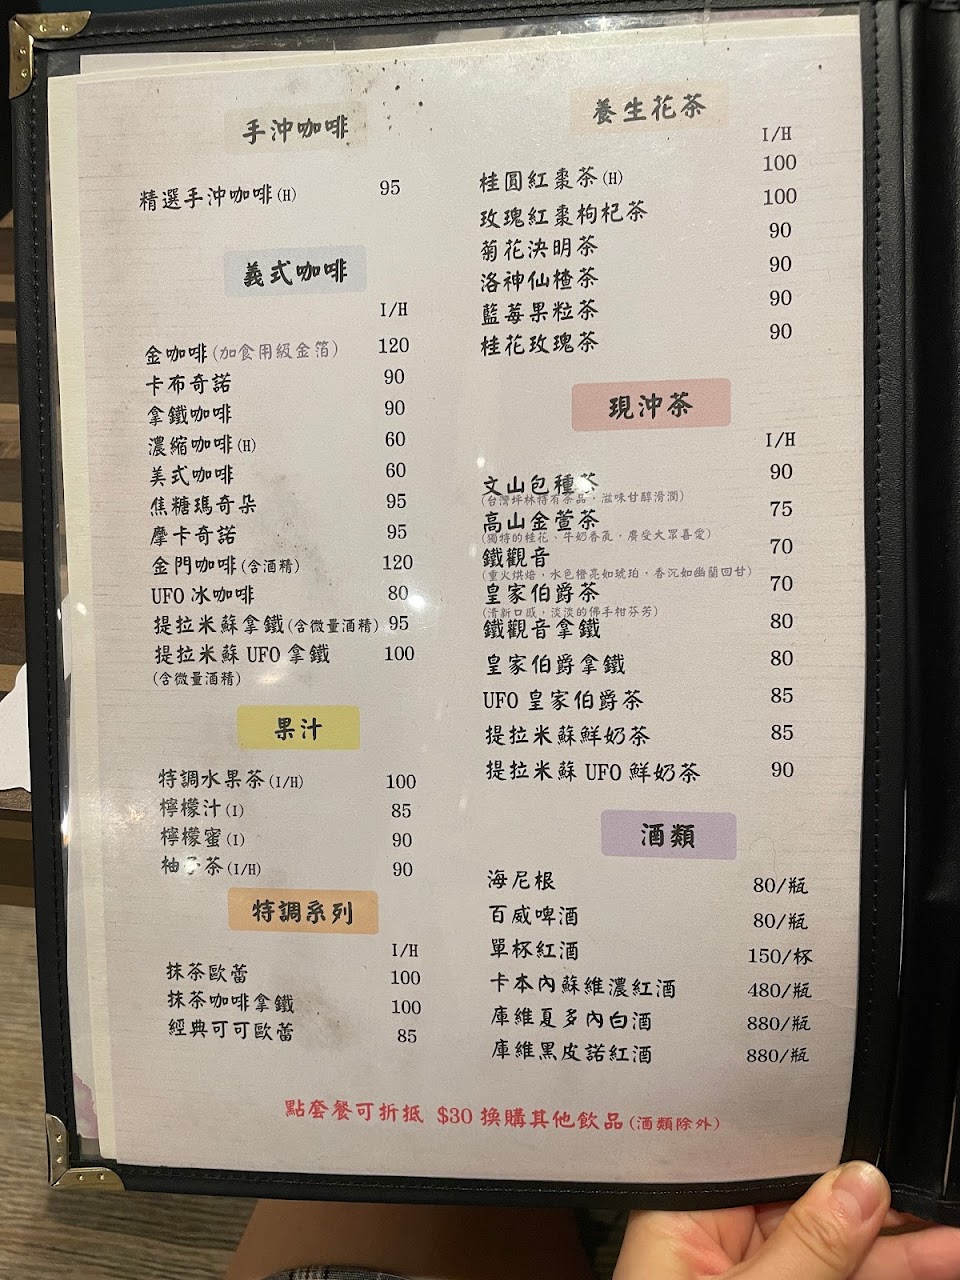 手沖咖啡
精選手沖咖啡(H) 95
義式咖啡
I/H
金咖啡(加食用級金箔) 120
卡布奇諾 90
拿鐵咖啡 90
濃縮咖啡(H) 60
美式咖啡 60
焦糖瑪奇朵 95
摩卡奇諾 95
金門咖啡(含酒精) 120
UFO 冰咖啡 80
提拉米蘇拿鐵(含微量酒精) 95
提拉米蘇 UFO 拿鐵 100
(含微量酒精)
果汁
特調水果茶(I/H) 100
檸檬汁(I) 85
檸檬蜜(I) 90
柚子茶(I/H) 90
特調系列
I/H
抹茶歐蕾 100
抹茶咖啡拿鐵 100
經典可可歐蕾 85
養生花茶
I/H
桂圓紅棗茶(H) 100
玫瑰紅棗枸杞茶 100
菊花決明茶 90
洛神仙楂茶 90
藍莓果粒茶 90
桂花玫瑰茶 90
現沖茶
I/H
文山包種茶 90
(台灣坪林特有茶品，滋味甘醇滑潤)
高山金萱茶 75
(獨特的桂花、牛奶香氣，廣受大眾喜愛)
鐵觀音 70
(重火烘焙，水色橙亮如琥珀，香沉如幽蘭回甘)
皇家伯爵茶 70
(清新口感，淡淡的佛手柑芬芳)
鐵觀音拿鐵 80
皇家伯爵拿鐵 80
UFO 皇家伯爵茶 85
提拉米蘇鮮奶茶 85
提拉米蘇 UFO 鮮奶茶 90
酒類
海尼根 80/瓶
百威啤酒 80/瓶
單杯紅酒 150/杯
卡本內蘇維濃紅酒 480/瓶
庫維夏多內白酒 880/瓶
庫維黑皮諾紅酒 880/瓶
點套餐可折抵 $30 換購其他飲品(酒類除外)